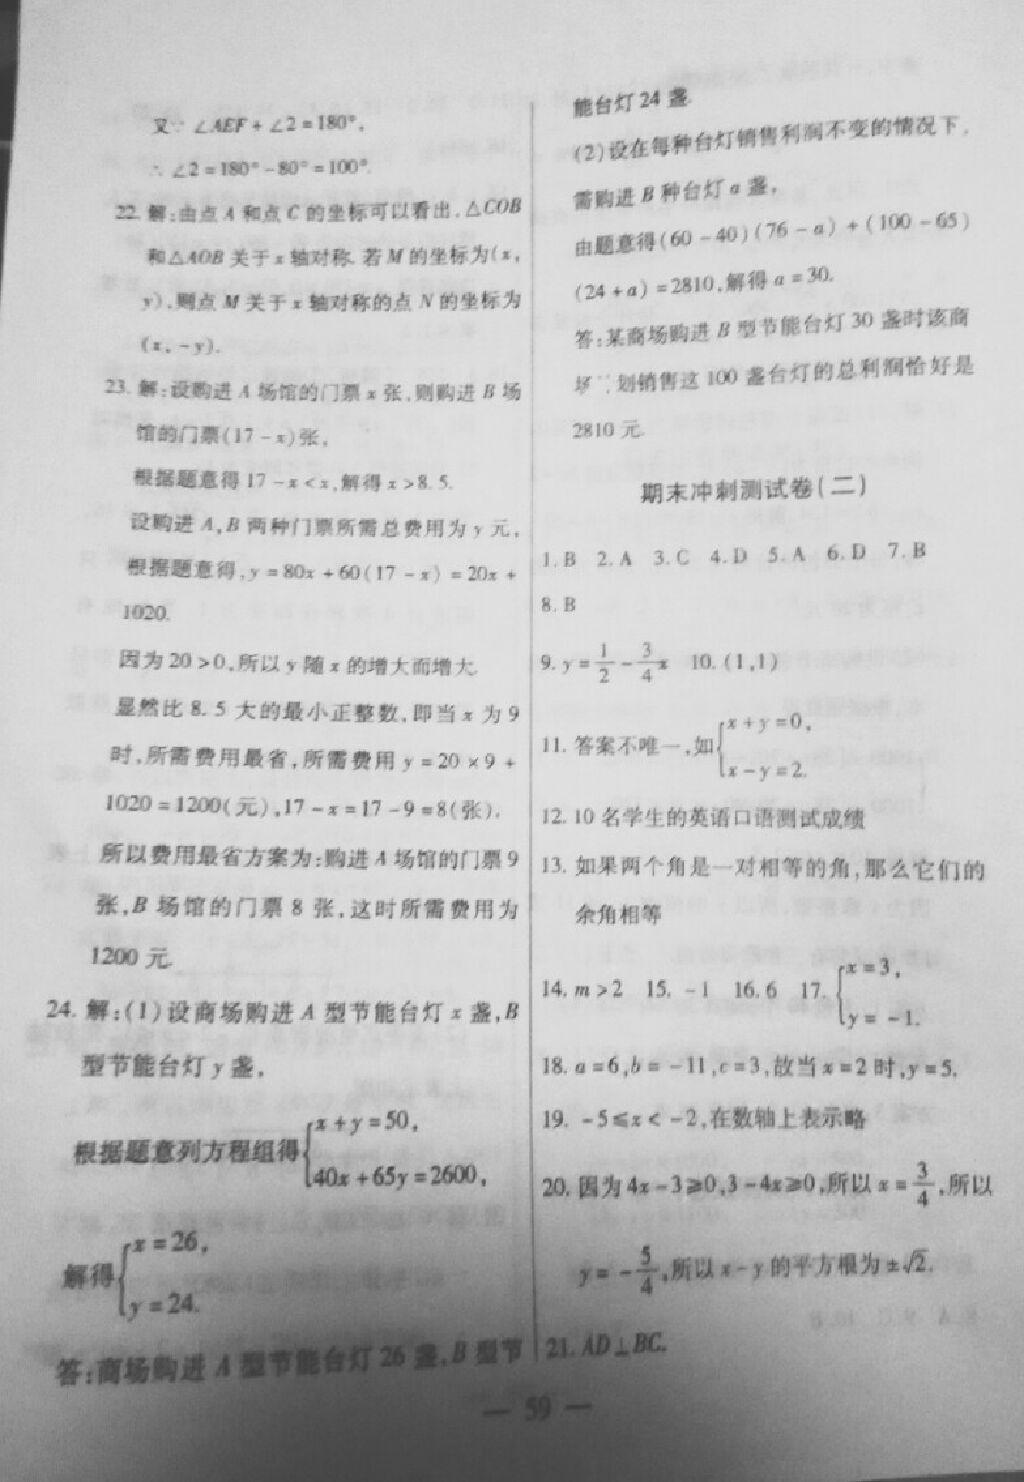 又∵∠AEF+∠2=180°,
∴∠2=180°-80°=100°.
22. 解:由点A和点C的坐标可以看出,△COB
和△AOB关于x轴对称.若M的坐标为(x,
y),则点M关于x轴对称的点N的坐标为
(x,-y).
23. 解:设购进A场馆的门票x张,则购进B场
馆的门票(17-x)张,
根据题意得17-x<x,解得x>8.5.
设购进A,B两种门票所需总费用为y元,
根据题意得,y=80x+60(17-x)=20x+
1020.
因为20>0,所以y随x的增大而增大.
显然比8.5大的最小正整数,即当x为9
时,所需费用最省,所需费用y=20×9+
1020=1200(元),17-x=17-9=8(张).
所以费用最省方案为:购进A场馆的门票9
张,B场馆的门票8张,这时所需费用为
1200元.
24. 解:(1)设商场购进A型节能台灯x盏,B
型节能台灯y盏,
根据题意列方程组得{x+y=50,
40x+65y=2600,
解得{x=26,
y=24.
答:商场购进A型节能台灯26盏,B型节
能台灯24盏.
(2)设在每种台灯销售利润不变的情况下,
需购进B种台灯a盏,
由题意得(60-40)(76-a)+(100-65)
(24+a)=2810,解得a=30.
答:某商场购进B型节能台灯30盏时该商
场 划销售这100盏台灯的总利润恰好是
2810元.
期末冲刺测试卷(二)
1. B 2. A 3. C 4. D 5. A 6. D 7. B
8. B
9. y=1/2-3/4x 10. (1,1)
11. 答案不唯一,如{x+y=0,
x-y=2.
12. 10名学生的英语口语测试成绩
13. 如果两个角是一对相等的角,那么它们的
余角相等
14. m>2 15. -1 16. 6 17. {x=3,
y=-1.
18. a=6,b=-11,c=3,故当x=2时,y=5.
19. -5≤x<-2,在数轴上表示略
20. 因为4x-3≥0,3-4x≥0,所以x=3/4,所以
y=-5/4,所以x-y的平方根为±√2.
21. AD⊥BC.
— 59 —